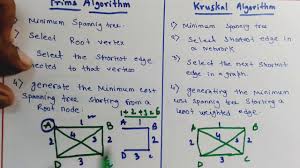 Prims Algorithm
Minimum Spanning tree.
Select Root vertex
Select the Shortest edge
connected to that vertex
4) generate the Minimum cost
spanning tree Starting from a
Root node
1+2+3=6
A
B
D
1
2
3
4
3
B
2
C
D
3
Kruskal Algorithm
1) Minimum spanning tree
2) Select Shortest edge in
a network
3) Select the next shortest
edge in a graph.
4) generating the minimum
cost spanning tree Starting a
least weighted edge.
A
1
B
4
3
2
D
3
C